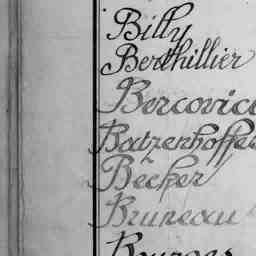 Billy
Berthillier
Bercovice
Batzenhoffer
Becker
Bruneau